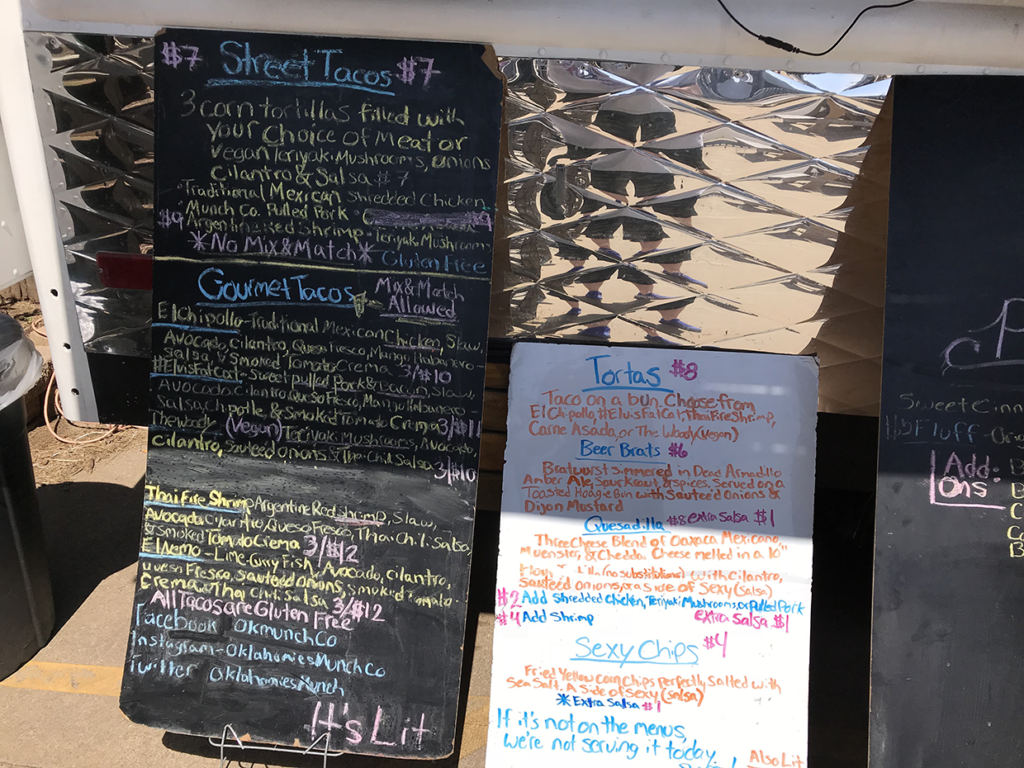 $7 Street Tacos $7
3 corn tortillas filled with
your choice of Meat or
Vegan Teriyaki Mushrooms, onions
Cilantro & Salsa $7
Traditional Mexican Shredded Chicken
Munch Co. Pulled Pork
$9 Argentine Red Shrimp · Teriyaki Mushrooms
*No Mix & Match* Gluten Free
Gourmet Tacos Mix & Match
Allowed
El Chipollo - Traditional Mexican Chicken, Slaw,
Avocado, cilantro, Queso Fresco, Mango Habanero
Salsa, & Smoked Tomato Crema 3/$10
#ElvisFatCat - Sweet pulled Pork & Bacon, Slaw,
Avocado, cilantro, Queso Fresco, Mango Habanero
Salsa, Chipotle, & Smoked Tomato Crema 3/$11
The Woody (Vegan) Teriyaki Mushrooms, Avocado,
Cilantro, Sauteed onions & Thai Chili Salsa
3/$10
Thai Fire Shrimp Argentine Red Shrimp, Slaw,
Avocado, Cilantro, Queso Fresco, Thai Chili Salsa,
& Smoked Tomato Crema 3/$12
El Nemo - Lime Curry Fish, Avocado, Cilantro,
Queso Fresco, Sauteed onions, Smoked Tomato
Crema & Thai Chili Salsa 3/$12
All Tacos are Gluten Free
Facebook OKmunchCo
Instagram - OklahomiesMunchCo
Twitter OklahomiesMunch
It's Lit
Tortas $8
Taco on a bun. Choose from
El Chipollo, #ElvisFatCat, Thai Fire Shrimp,
Carne Asada, or The Woody (Vegan)
Beer Brats $6
Bratwurst simmered in Dead Armadillo
Amber Ale, Sourkraut, & spices. Served on a
Toasted Hoagie Bun with Sauteed Onions &
Dijon Mustard
Quesadilla $8 extra salsa $1
Three Cheese Blend of Oaxaca Mexicano,
Muenster, & Chedda. Cheese melted in a 10"
(no substitutions) with Cilantro,
Sauteed onions, & a side of Sexy (Salsa)
$2 Add Shredded Chicken, Teriyaki Mushrooms, or Pulled Pork
$4 Add Shrimp extra salsa $1
Sexy Chips $4
Fried Yellow Corn Chips perfectly salted with
Sea Salt. A side of Sexy (salsa)
*Extra Salsa $1
If it's not on the menus,
we're not serving it today.
Also Lit
Sweet Cinn
Fluff
Add
Ons: